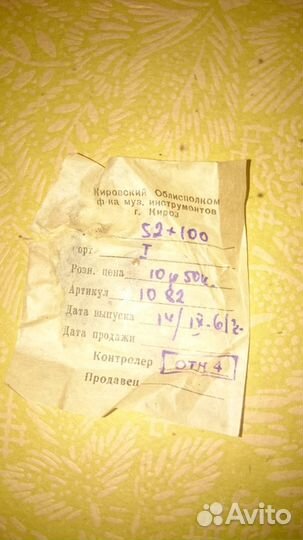 Кировский Облисполком
ф-ка муз. инструментов
г. Киров
52+100
Сорт I
Розн. цена 10 р 50к.
Артикул 1082
Дата выпуска 14/IX-61г.
Дата продажи
Контролер ОТК 4
Продавец
Avito